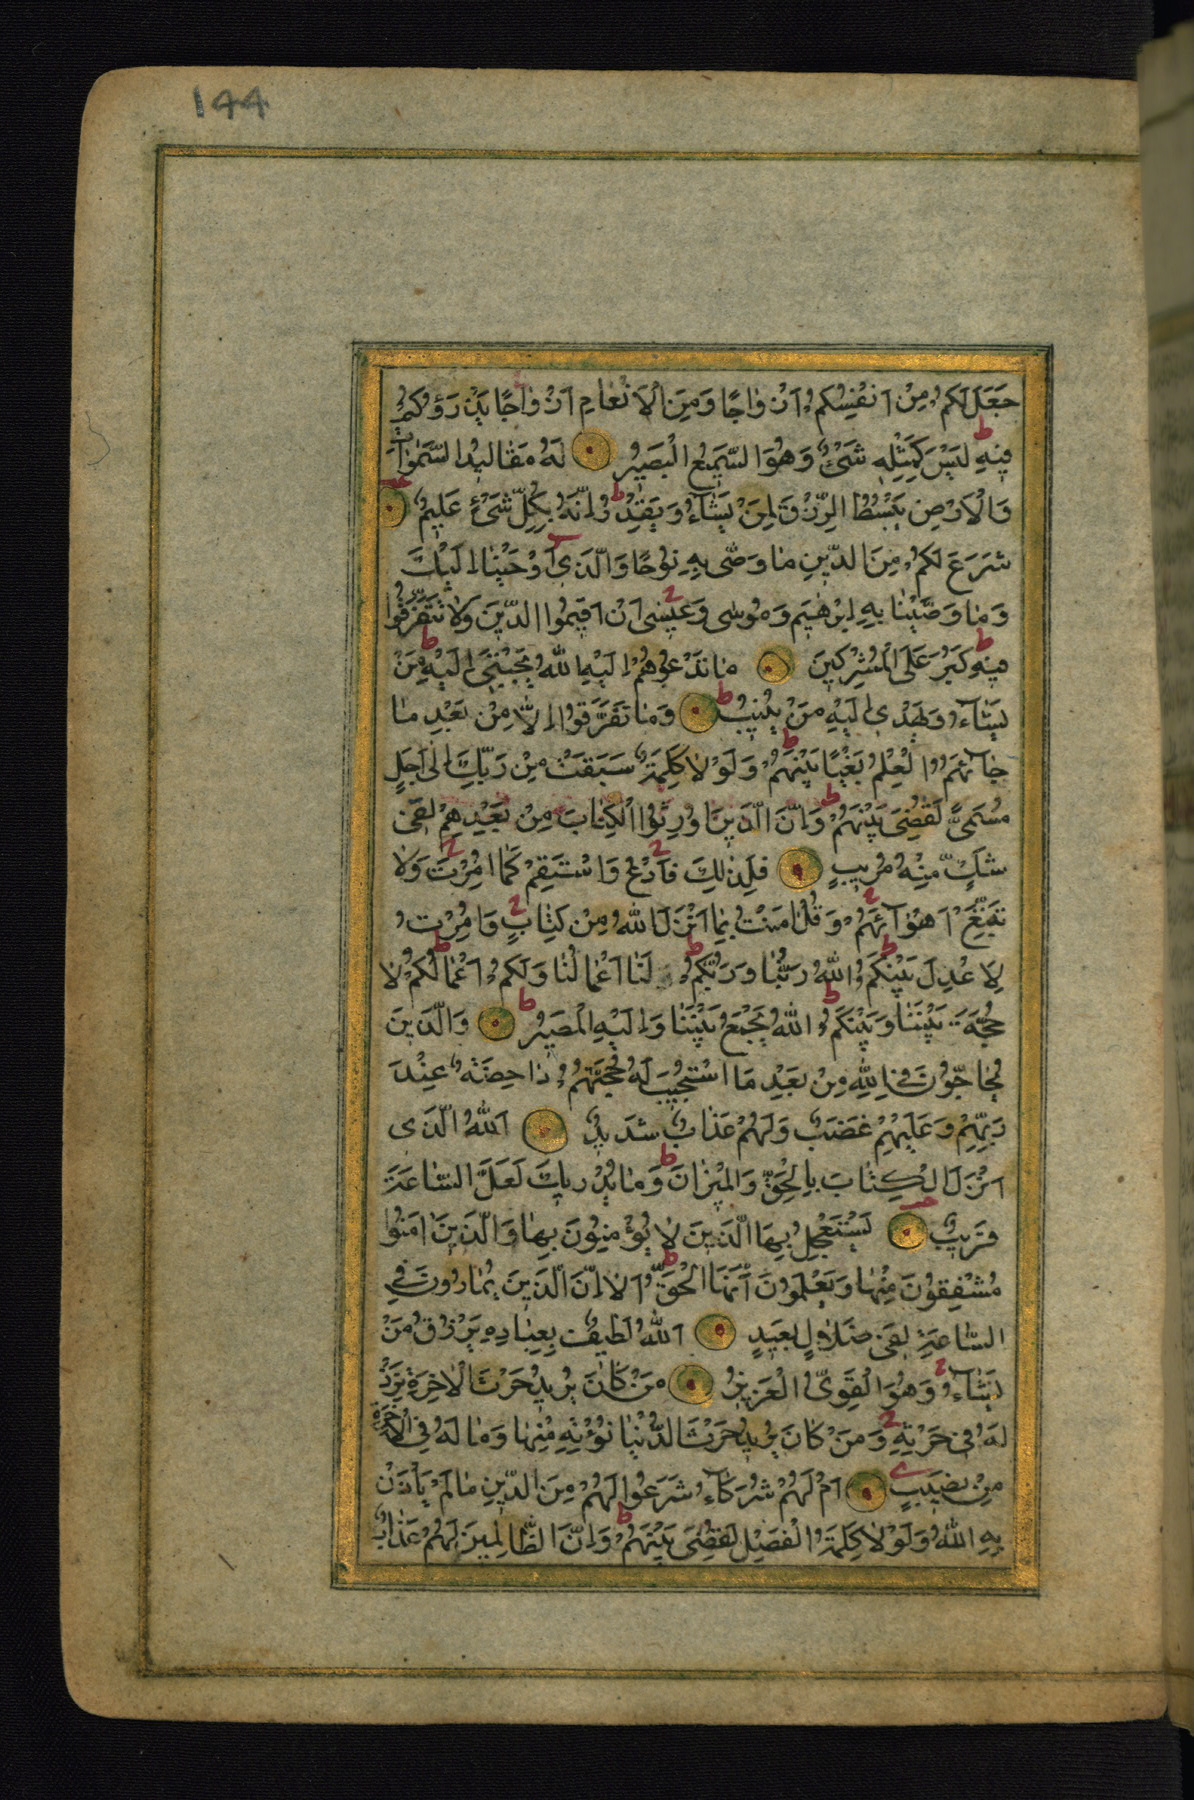 144
جَعَلَ لَكُمْ مِنْ اَنْفُسِكُمْ اَزْوٰاجًا وَمِنَ الْاَنْعٰامِ اَزْوٰاجًا يَذْرَؤُكُمْ
فِيهِ ط لَيْسَ كَمِثْلِهِ شَىْءٌ وَهُوَ السَّمِيعُ الْبَصِيرُ لَهُ مَقٰالِيدُ السَّمٰوٰاتِ
وَالْاَرْضِ يَبْسُطُ الرِّزْقَ لِمَنْ يَشٰآءُ وَيَقْدِرُ ط اِنَّهُ بِكُلِّ شَىْءٍ عَلِيمٌ
شَرَعَ لَكُمْ مِنَ الدِّينِ مٰا وَصّٰى بِهِ نُوحًا وَالَّذِى اَوْحَيْنٰا اِلَيْكَ
وَمٰا وَصَّيْنٰا بِهِ اِبْرٰهِيمَ وَمُوسٰى وَعِيسٰى اَنْ اَقِيمُوا الدِّينَ وَلٰا تَتَفَرَّقُوا
فِيهِ ط كَبُرَ عَلَى الْمُشْرِكِينَ مٰا تَدْعُوهُمْ اِلَيْهِ ط اَللّٰهُ يَجْتَبِى اِلَيْهِ مَنْ
يَشٰآءُ وَيَهْدِى اِلَيْهِ مَنْ يُنِيبُ ط وَمٰا تَفَرَّقُوا اِلّٰا مِنْ بَعْدِ مٰا
جٰآءَهُمُ الْعِلْمُ بَغْيًا بَيْنَهُمْ ط وَلَوْلٰا كَلِمَةٌ سَبَقَتْ مِنْ رَبِّكَ اِلٰى اَجَلٍ
مُسَمًّى لَقُضِىَ بَيْنَهُمْ ط وَاِنَّ الَّذِينَ اُورِثُوا الْكِتٰابَ مِنْ بَعْدِهِمْ لَفِى
شَكٍّ مِنْهُ مُرِيبٍ فَلِذٰلِكَ فَادْعُ وَاسْتَقِمْ كَمٰا اُمِرْتَ وَلٰا
تَتَّبِعْ اَهْوٰآءَهُمْ وَقُلْ اٰمَنْتُ بِمٰا اَنْزَلَ اللّٰهُ مِنْ كِتٰابٍ وَاُمِرْتُ
لِاَعْدِلَ بَيْنَكُمْ ط اَللّٰهُ رَبُّنٰا وَرَبُّكُمْ ط لَنٰا اَعْمٰالُنٰا وَلَكُمْ اَعْمٰالُكُمْ ط لٰا
حُجَّةَ بَيْنَنٰا وَبَيْنَكُمْ ط اَللّٰهُ يَجْمَعُ بَيْنَنٰا وَاِلَيْهِ الْمَصِيرُ ط وَالَّذِينَ
يُحٰاجُّونَ فِى اللّٰهِ مِنْ بَعْدِ مَا اسْتُجِيبَ لَهُ حُجَّتُهُمْ دٰاحِضَةٌ عِنْدَ
رَبِّهِمْ وَعَلَيْهِمْ غَضَبٌ وَلَهُمْ عَذٰابٌ شَدِيدٌ اَللّٰهُ الَّذِى
اَنْزَلَ الْكِتٰابَ بِالْحَقِّ وَالْمِيزٰانَ ط وَمٰا يُدْرِيكَ لَعَلَّ السّٰاعَةَ
قَرِيبٌ يَسْتَعْجِلُ بِهَا الَّذِينَ لٰا يُؤْمِنُونَ بِهٰا وَالَّذِينَ اٰمَنُوا
مُشْفِقُونَ مِنْهٰا وَيَعْلَمُونَ اَنَّهَا الْحَقُّ ط اَلٰا اِنَّ الَّذِينَ يُمٰارُونَ فِى
السّٰاعَةِ لَفِى ضَلٰالٍ بَعِيدٍ اَللّٰهُ لَطِيفٌ بِعِبٰادِهِ يَرْزُقُ مَنْ
يَشٰآءُ وَهُوَ الْقَوِىُّ الْعَزِيزُ مَنْ كٰانَ يُرِيدُ حَرْثَ الْاٰخِرَةِ نَزِدْ
لَهُ فِى حَرْثِهِ وَمَنْ كٰانَ يُرِيدُ حَرْثَ الدُّنْيٰا نُؤْتِهِ مِنْهٰا وَمٰا لَهُ فِى الْاٰخِرَةِ
مِنْ نَصِيبٍ اَمْ لَهُمْ شُرَكٰآءُ شَرَعُوا لَهُمْ مِنَ الدِّينِ مٰا لَمْ يَأْذَنْ
بِهِ اللّٰهُ وَلَوْلٰا كَلِمَةُ الْفَصْلِ لَقُضِىَ بَيْنَهُمْ ط وَاِنَّ الظّٰالِمِينَ لَهُمْ عَذٰابٌ